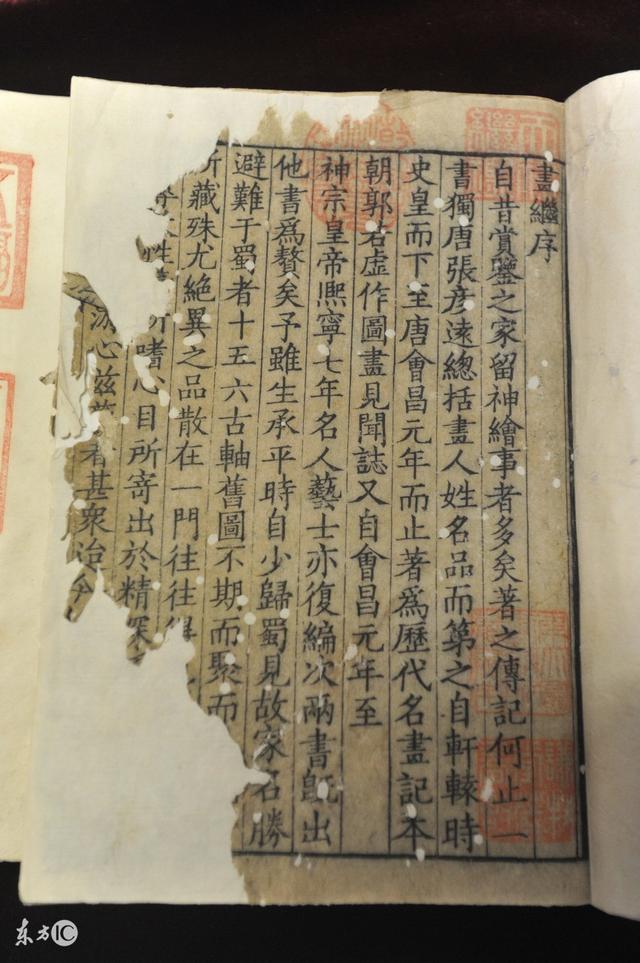 畫繼序
自昔賞鑒之家留神繪事者多矣著之傳記何止一
書獨唐張彥遠總括畫人姓名品而第之自軒轅時
史皇而下至唐會昌元年而止著為歷代名畫記本
朝郭若虛作圖畫見聞誌又自會昌元年至
神宗皇帝熈寧七年名人藝士亦復編次兩書旣出
他書為贅矣予雖生承平時自少歸蜀見故家名勝
避難于蜀者十五六古軸舊圖不期而聚而
所藏殊尤絕異之品散在一門往往得
性 所嗜心目所寄出於精深
游心兹藝者甚衆迨今
东方IC